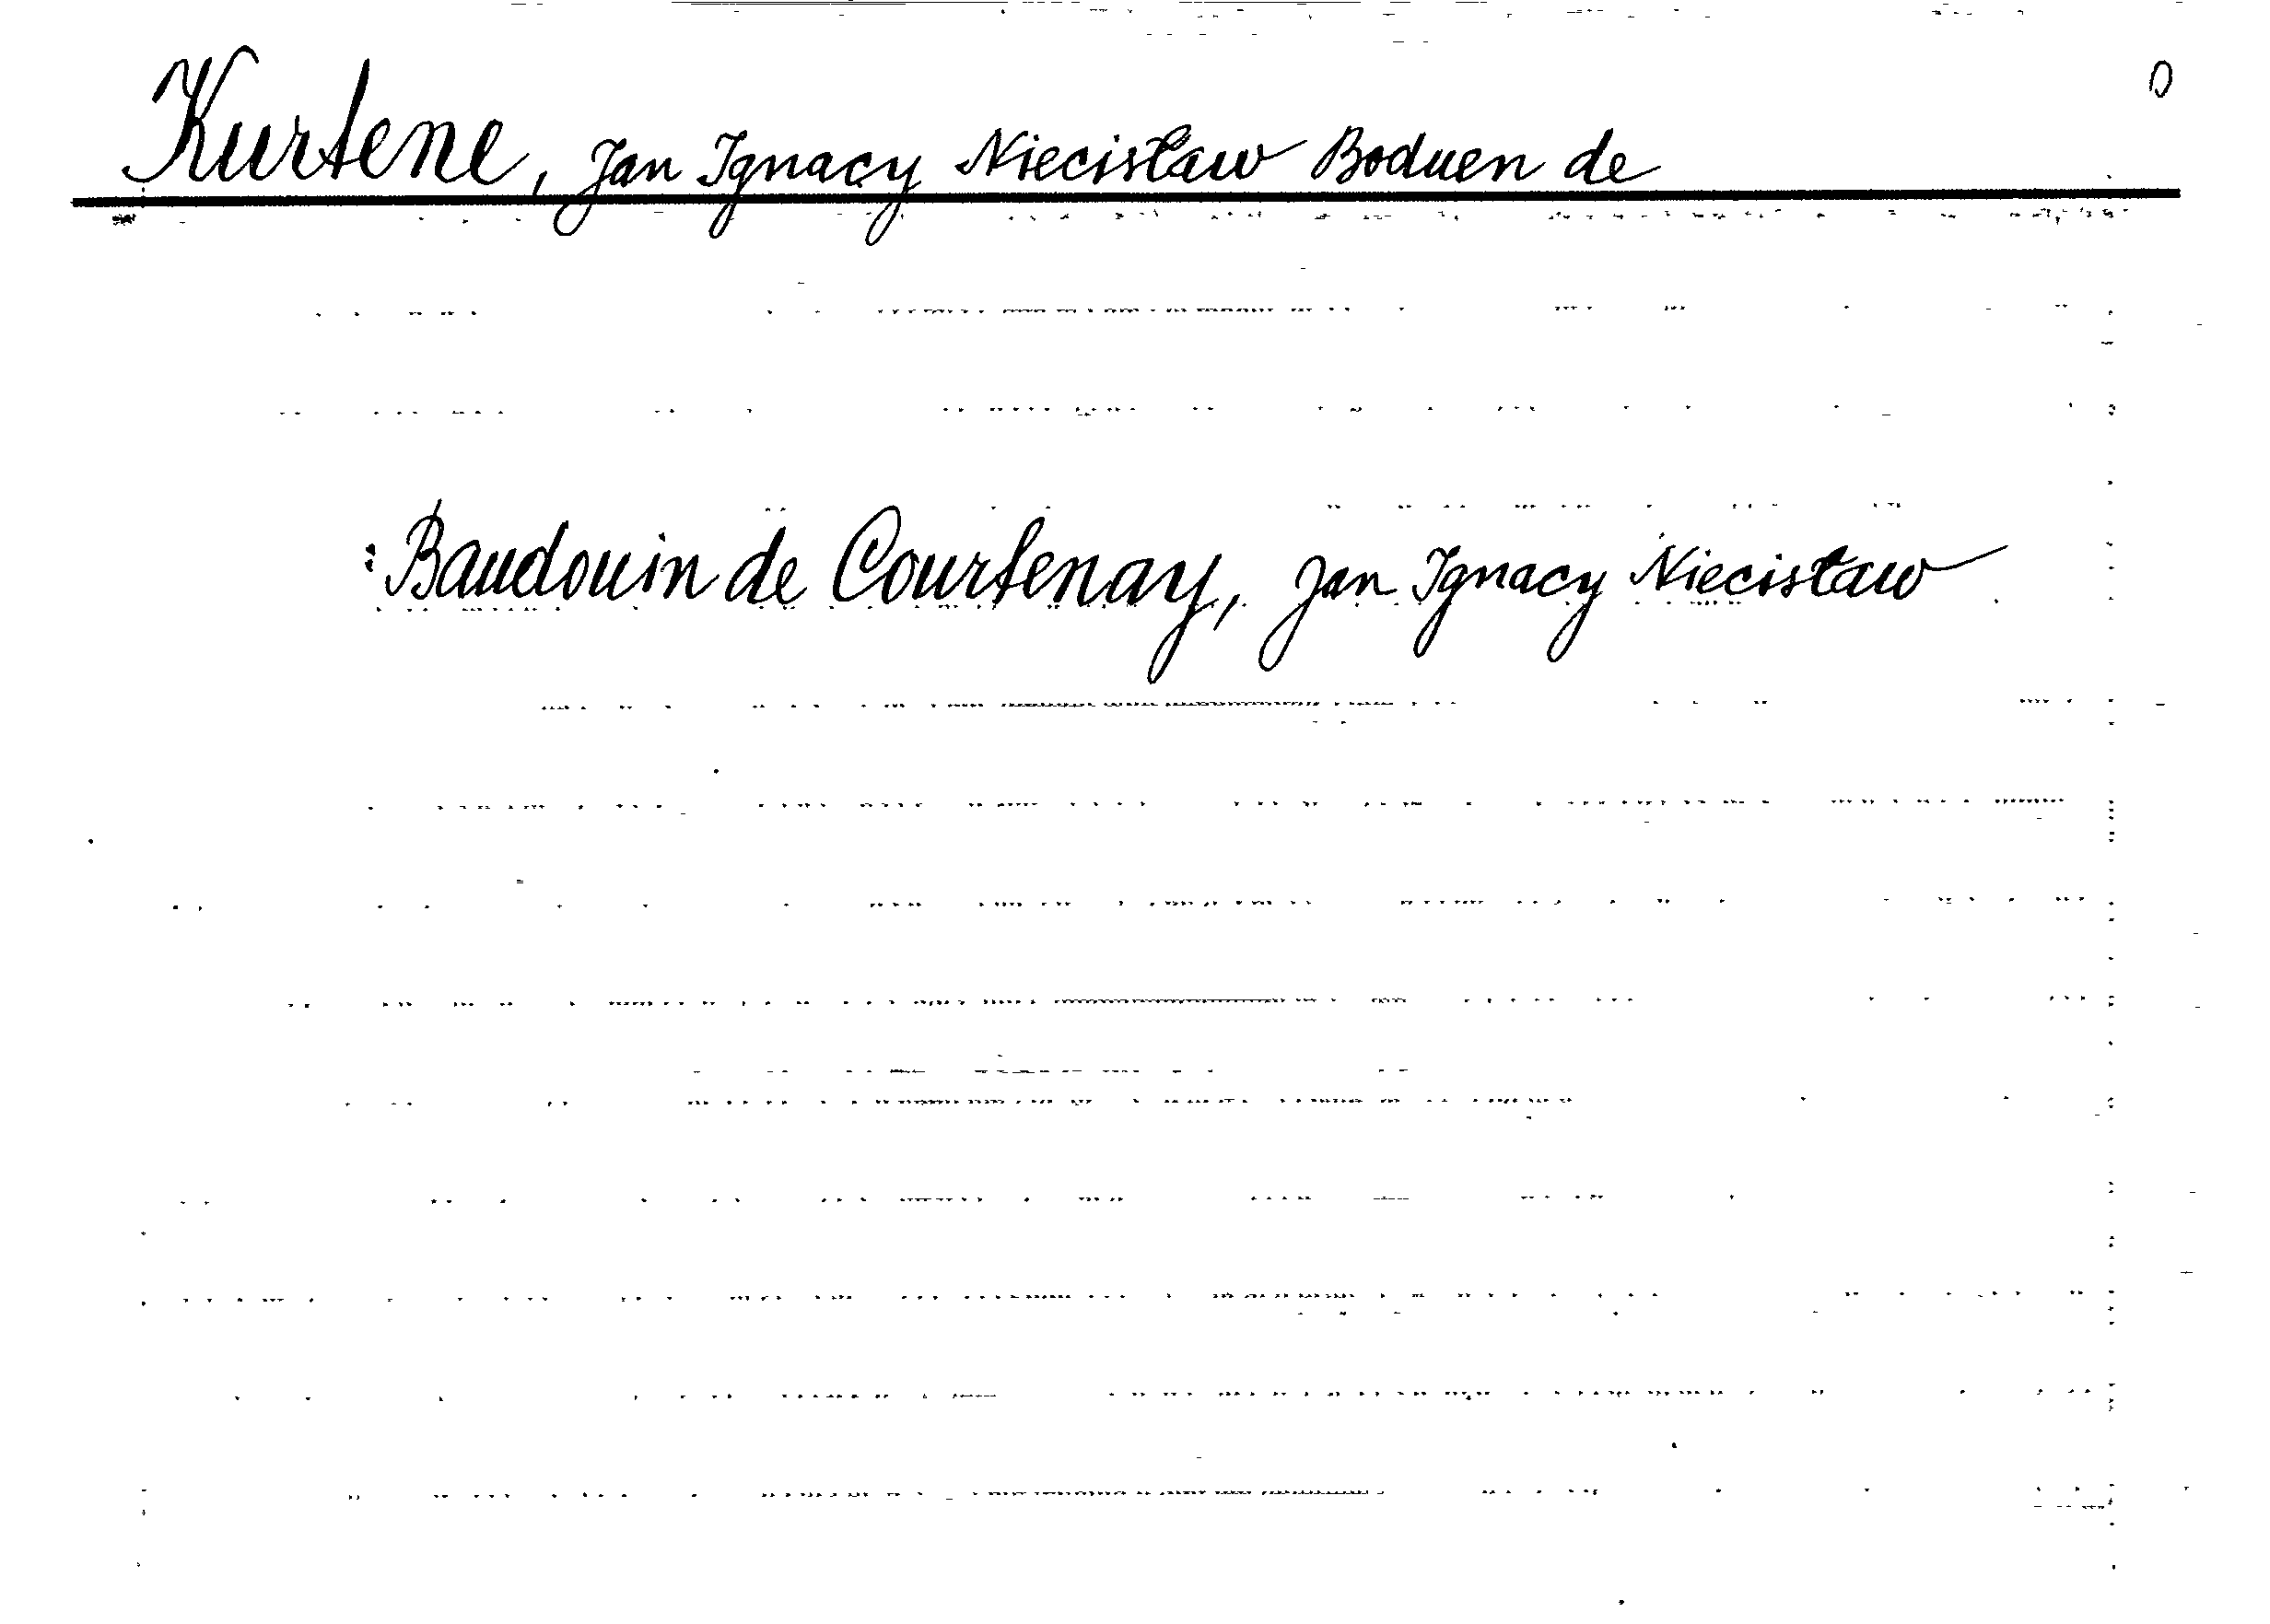 0
Kurtene, Jan Ignacy Niecisław Boduen de
: Baudouin de Courtenay, Jan Ignacy Niecisław